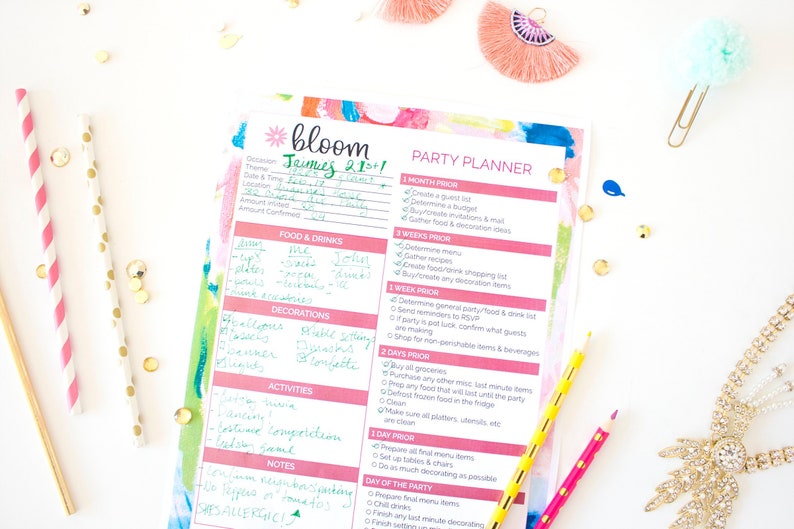 bloom
PARTY PLANNER
Occasion Jaimies 21st!
Theme
Date & Time Feb. 17
Location
Amount Invited
Amount Confirmed 24
FOOD & DRINKS
me John
- cups
- plates
DECORATIONS
balloons table settings
tassels
banner
lights confetti
ACTIVITIES
- trivia
- dancing!
- costume competition
- game
NOTES
- confirm neighbors parking
- No Peppers or tomatoes
SHES ALLERGIC!
1 MONTH PRIOR
Create a guest list
Determine a budget
Buy/create invitations & mail
Gather food & decoration ideas
3 WEEKS PRIOR
Determine menu
Gather recipes
Create food/drink shopping list
Buy/create any decoration items
1 WEEK PRIOR
Determine general party/food & drink list
Send reminders to RSVP
If party is pot luck, confirm what guests
are making
Shop for non-perishable items & beverages
2 DAYS PRIOR
Buy all groceries
Purchase any other misc. last minute items
Prep any food that will last until the party
Defrost frozen food in the fridge
Clean
Make sure all platters, utensils, etc
are clean
1 DAY PRIOR
Prepare all final menu items
Set up tables & chairs
Do as much decorating as possible
DAY OF THE PARTY
Prepare final menu items
Chill drinks
Finish any last minute decorating
Finish setting up